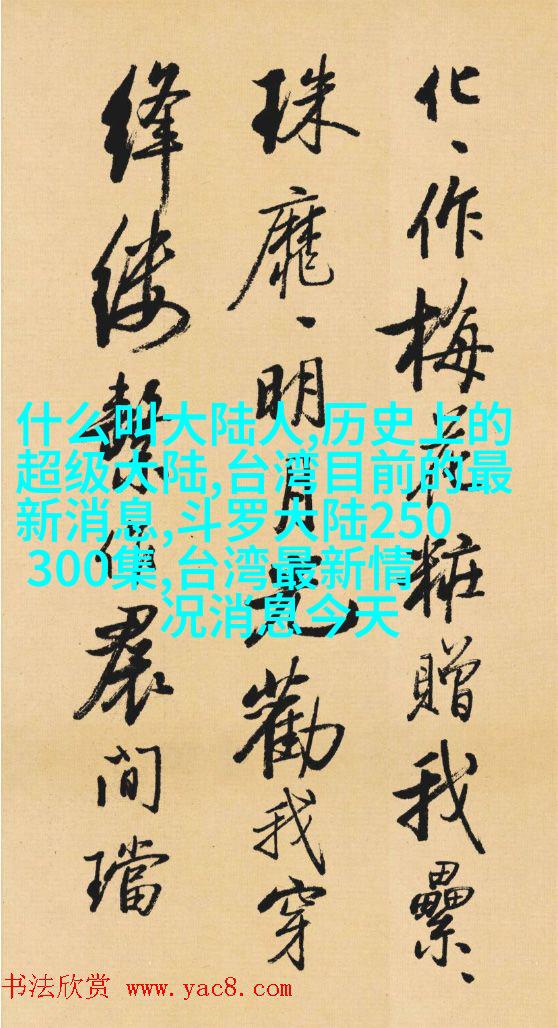 化、作梅花粧贈我纍、
珠靡、明月光勸我穿
絳縷繫作裠間璫
什么叫大陆人,历史上的
超级大陆,台湾目前的最
新消息,斗罗大陆250
300集,台湾最新情
况消息今天
书法欣赏 www.yac8.com